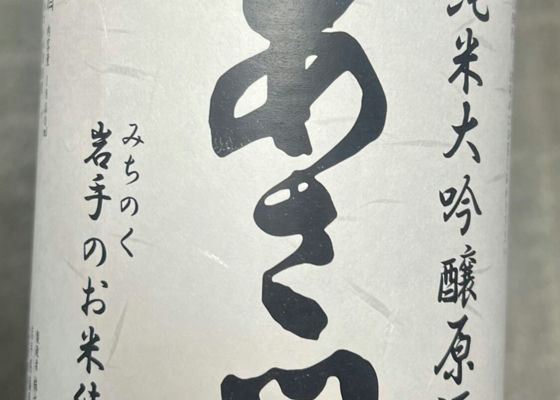 純米大吟醸原酒
あさ開
みちのく
岩手のお米仕